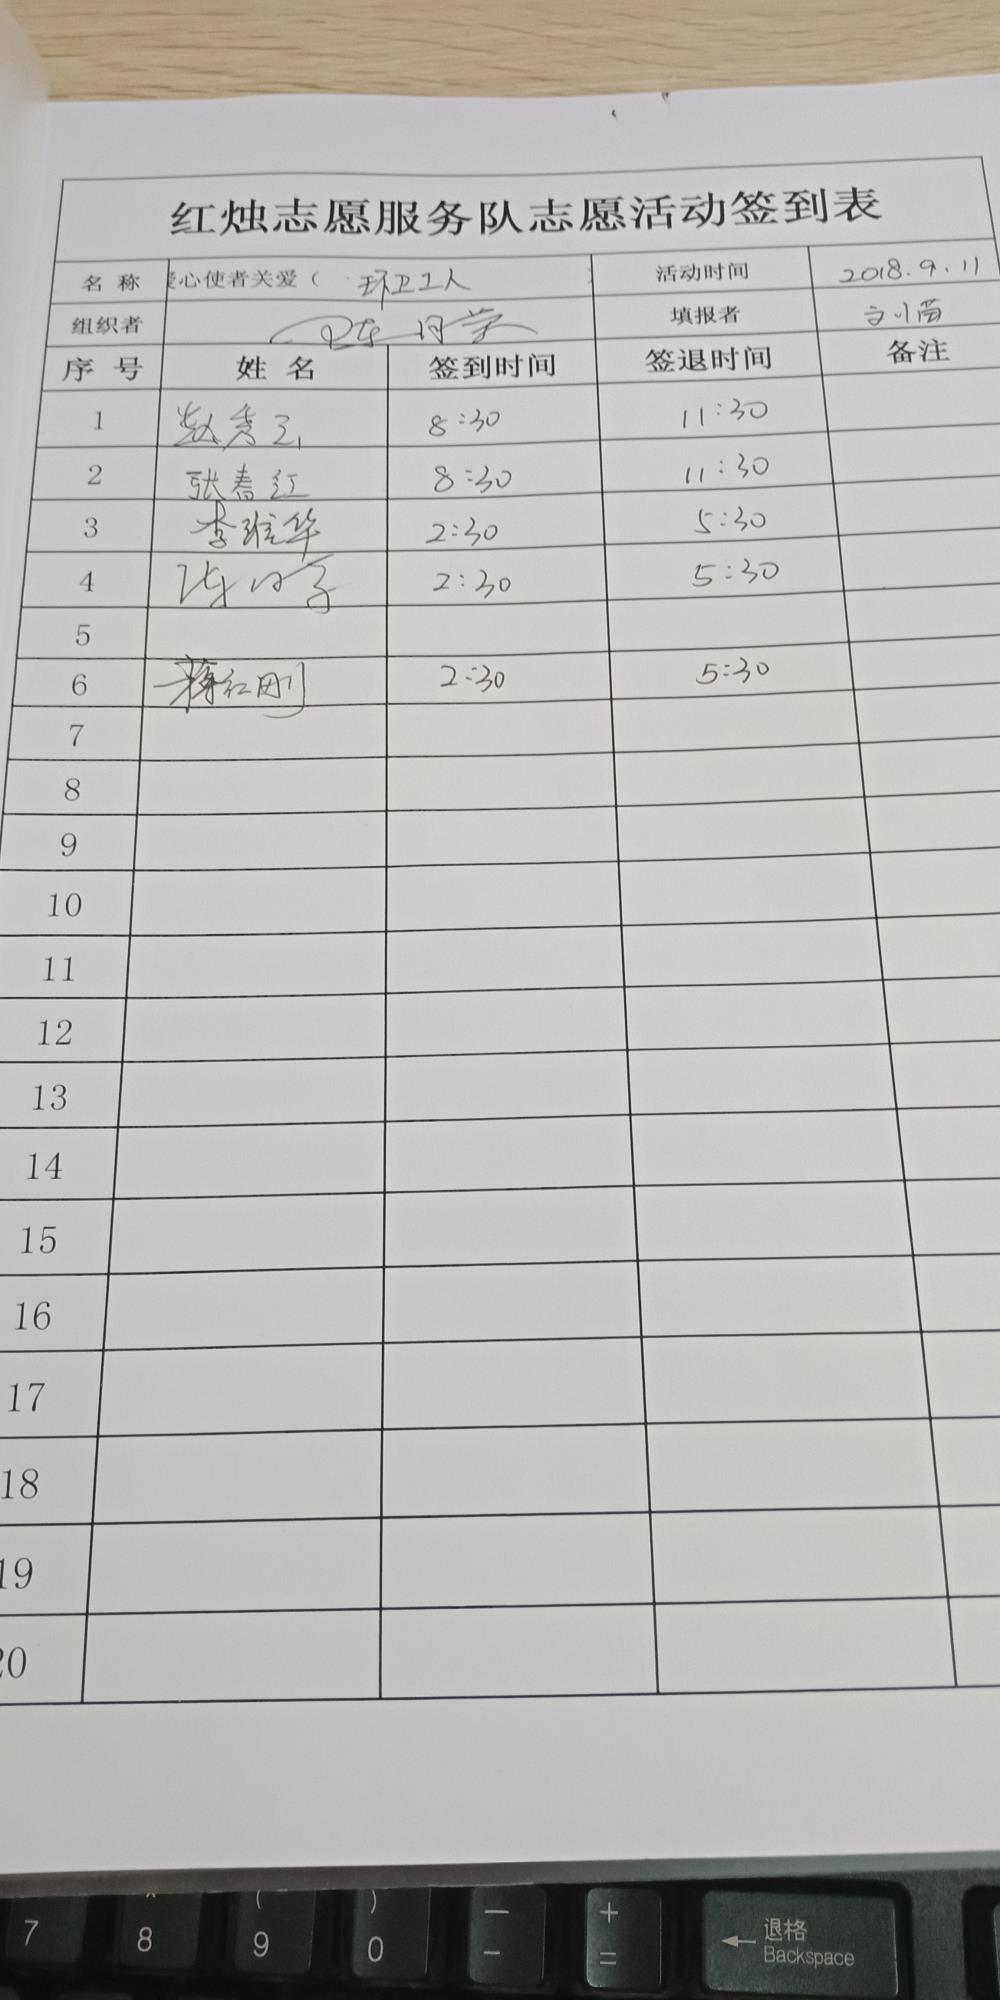 红烛志愿服务队志愿活动签到表
名 称 爱心使者关爱( 环卫工人 活动时间 2018.9.11
组织者 填报者
序 号 姓 名 签到时间 签退时间 备注
1 赵秀玉 8:30 11:30
2 张春红 8:30 11:30
3 李维华 2:30 5:30
4 2:30 5:30
5
6 蒋红刚 2:30 5:30
7
8
9
10
11
12
13
14
15
16
17
18
19
20
7 8 ( 9 ) 0 — - + = ← 退格
Backspace